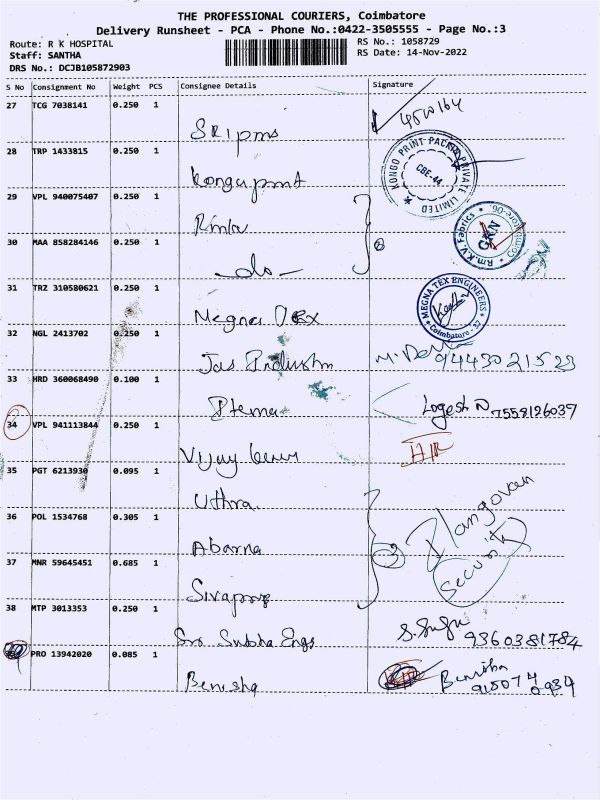 THE PROFESSIONAL COURIERS, Coimbatore
Delivery Runsheet - PCA - Phone No.:0422-3505555 - Page No.:3
Route: R K HOSPITAL
RS No.: 1058729
Staff: SANTHA
RS Date: 14-Nov-2022
DRS No.: DCJB105872903
S No Consignment No Weight PCS Consignee Details Signature
27 TCG 7038141 0.250 1
28 TRP 1433815 0.250 1
KONGO PRINT PACK PRIVATE LIMITED
CBE-44
29 VPL 940075407 0.250 1
30 MAA 858284146 0.250 1
-do-
2
Rm.K.V. Fabrics
GKN
31 TRZ 310580621 0.250 1
Megna Tex
MEGNA TEX ENGINEERS
Coimbatore - 37
32 NGL 2413702 0.250 1
33 HRD 360068490 0.100 1
Logesh N 7558126037
34 VPL 941113844 0.250 1
35 PGT 6213930 0.095 1
Uthra
36 POL 1534768 0.305 1
Abarna
3
Elangovan
Security
37 MNR 59645451 0.685 1
38 MTP 3013353 0.250 1
Sri Subha Engs
9360381784
PRO 13942020 0.085 1
Benisha
Benisha
915074
0934